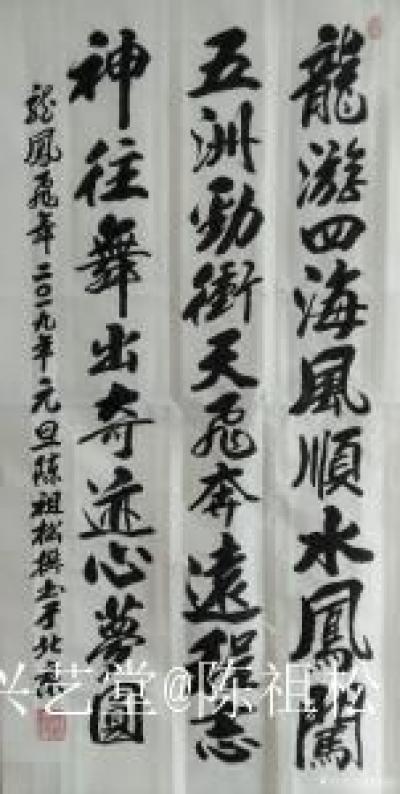 龍游四海風順水鳳闖
五洲勁衝天飛奔遠
志
神往舞出奇迹心夢圓
龍鳳飛舞二〇一九年元旦陈祖松撰书于北京
兴艺堂@陈祖松